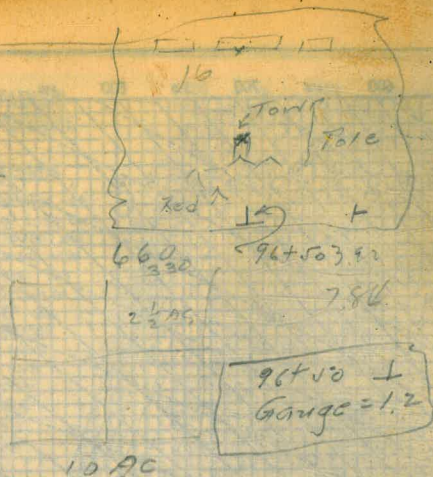 16
Tower
Pole
Red
660
330
96+50 3.92
2 1/2 AC
7.84
96+50 ⊥
Gauge = 1.2
10 AC